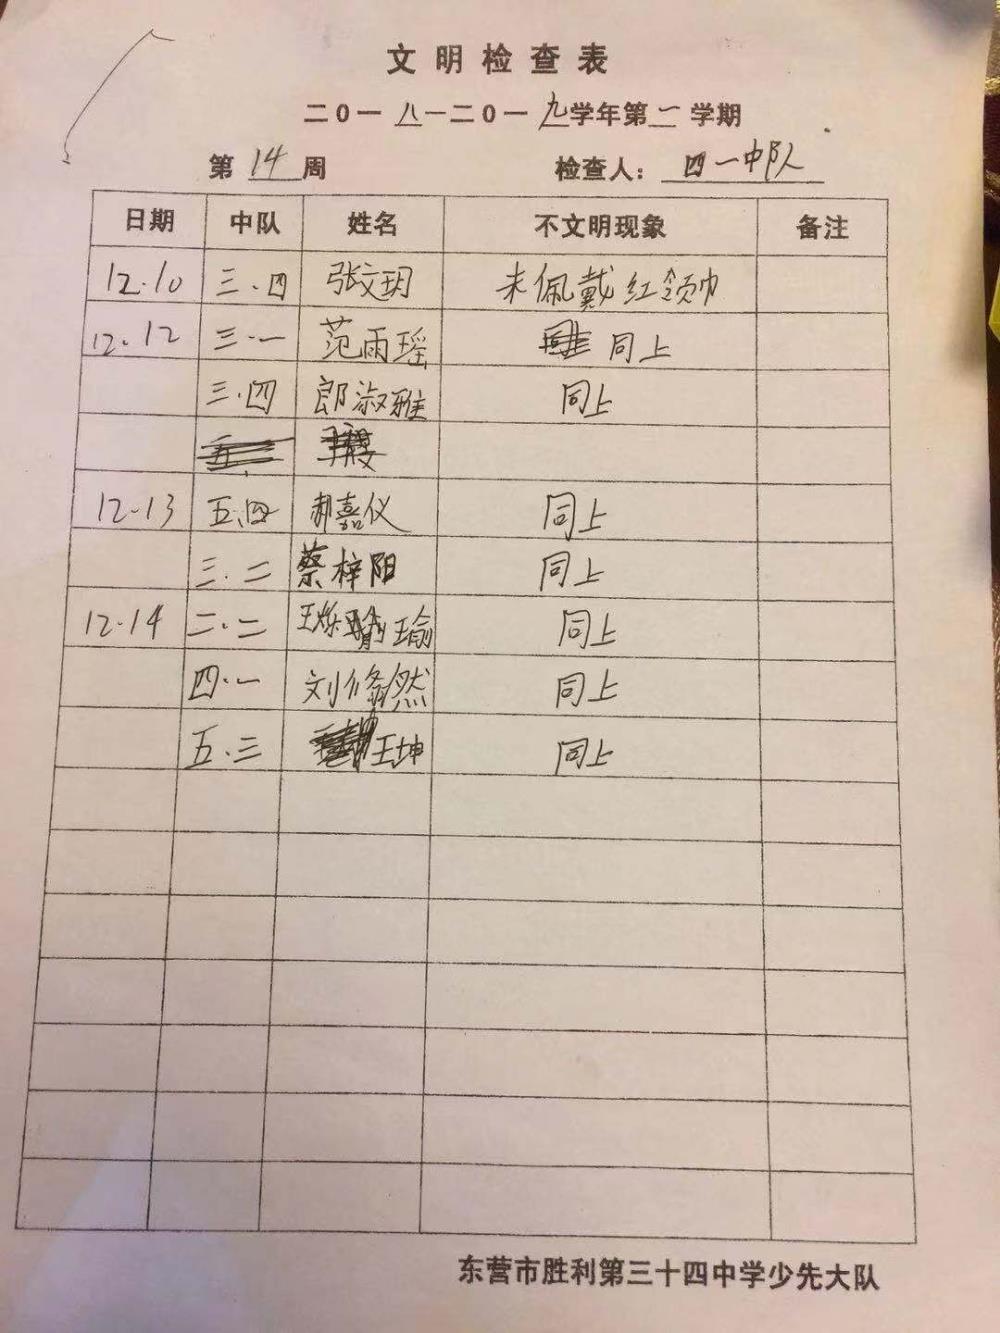 文明检查表
二0一八一二0一九学年第一学期
第14周 检查人：四一中队
日期 中队 姓名 不文明现象 备注
12.10 三.四 张文玥 未佩戴红领巾
12.12 三.一 范雨瑶 同上
三.四 郎淑雅 同上
12.13 五.四 郝嘉仪 同上
三.二 蔡梓阳 同上
12.14 二.二 王烁瑜 同上
四.一 刘修然 同上
五.三 王坤 同上
东营市胜利第三十四中学少先大队